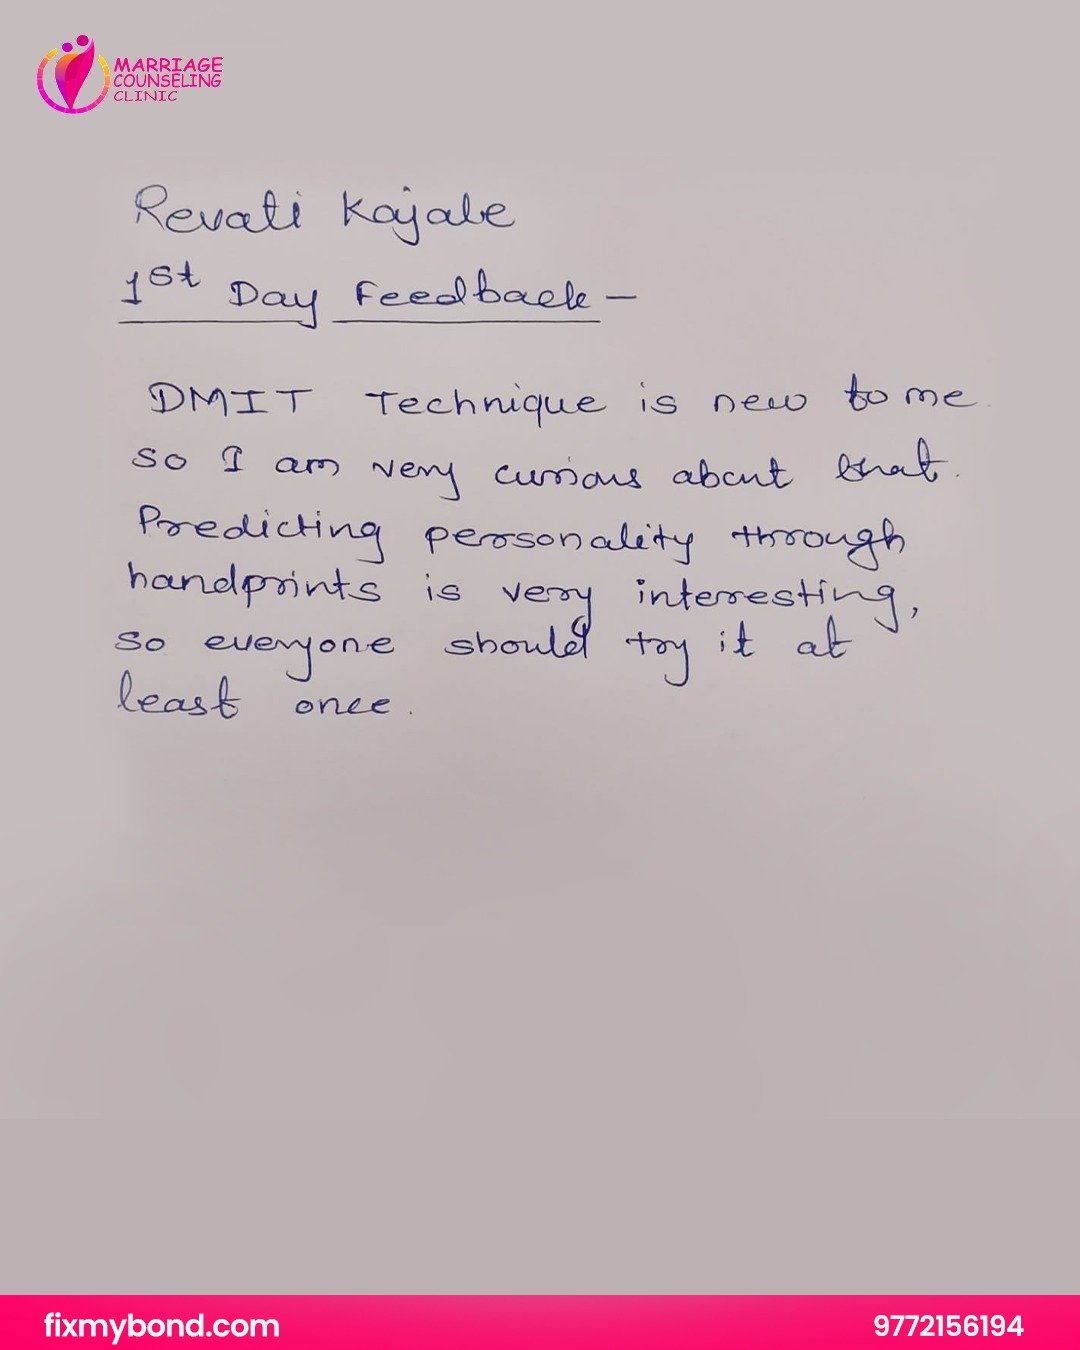 MARRIAGE
COUNSELING
CLINIC
Revati Kajale
1st Day Feedback –
DMIT Technique is new to me
so I am very curious about that.
Predicting personality through
handprints is very interesting,
so everyone should try it at
least once.
fixmybond.com
9772156194